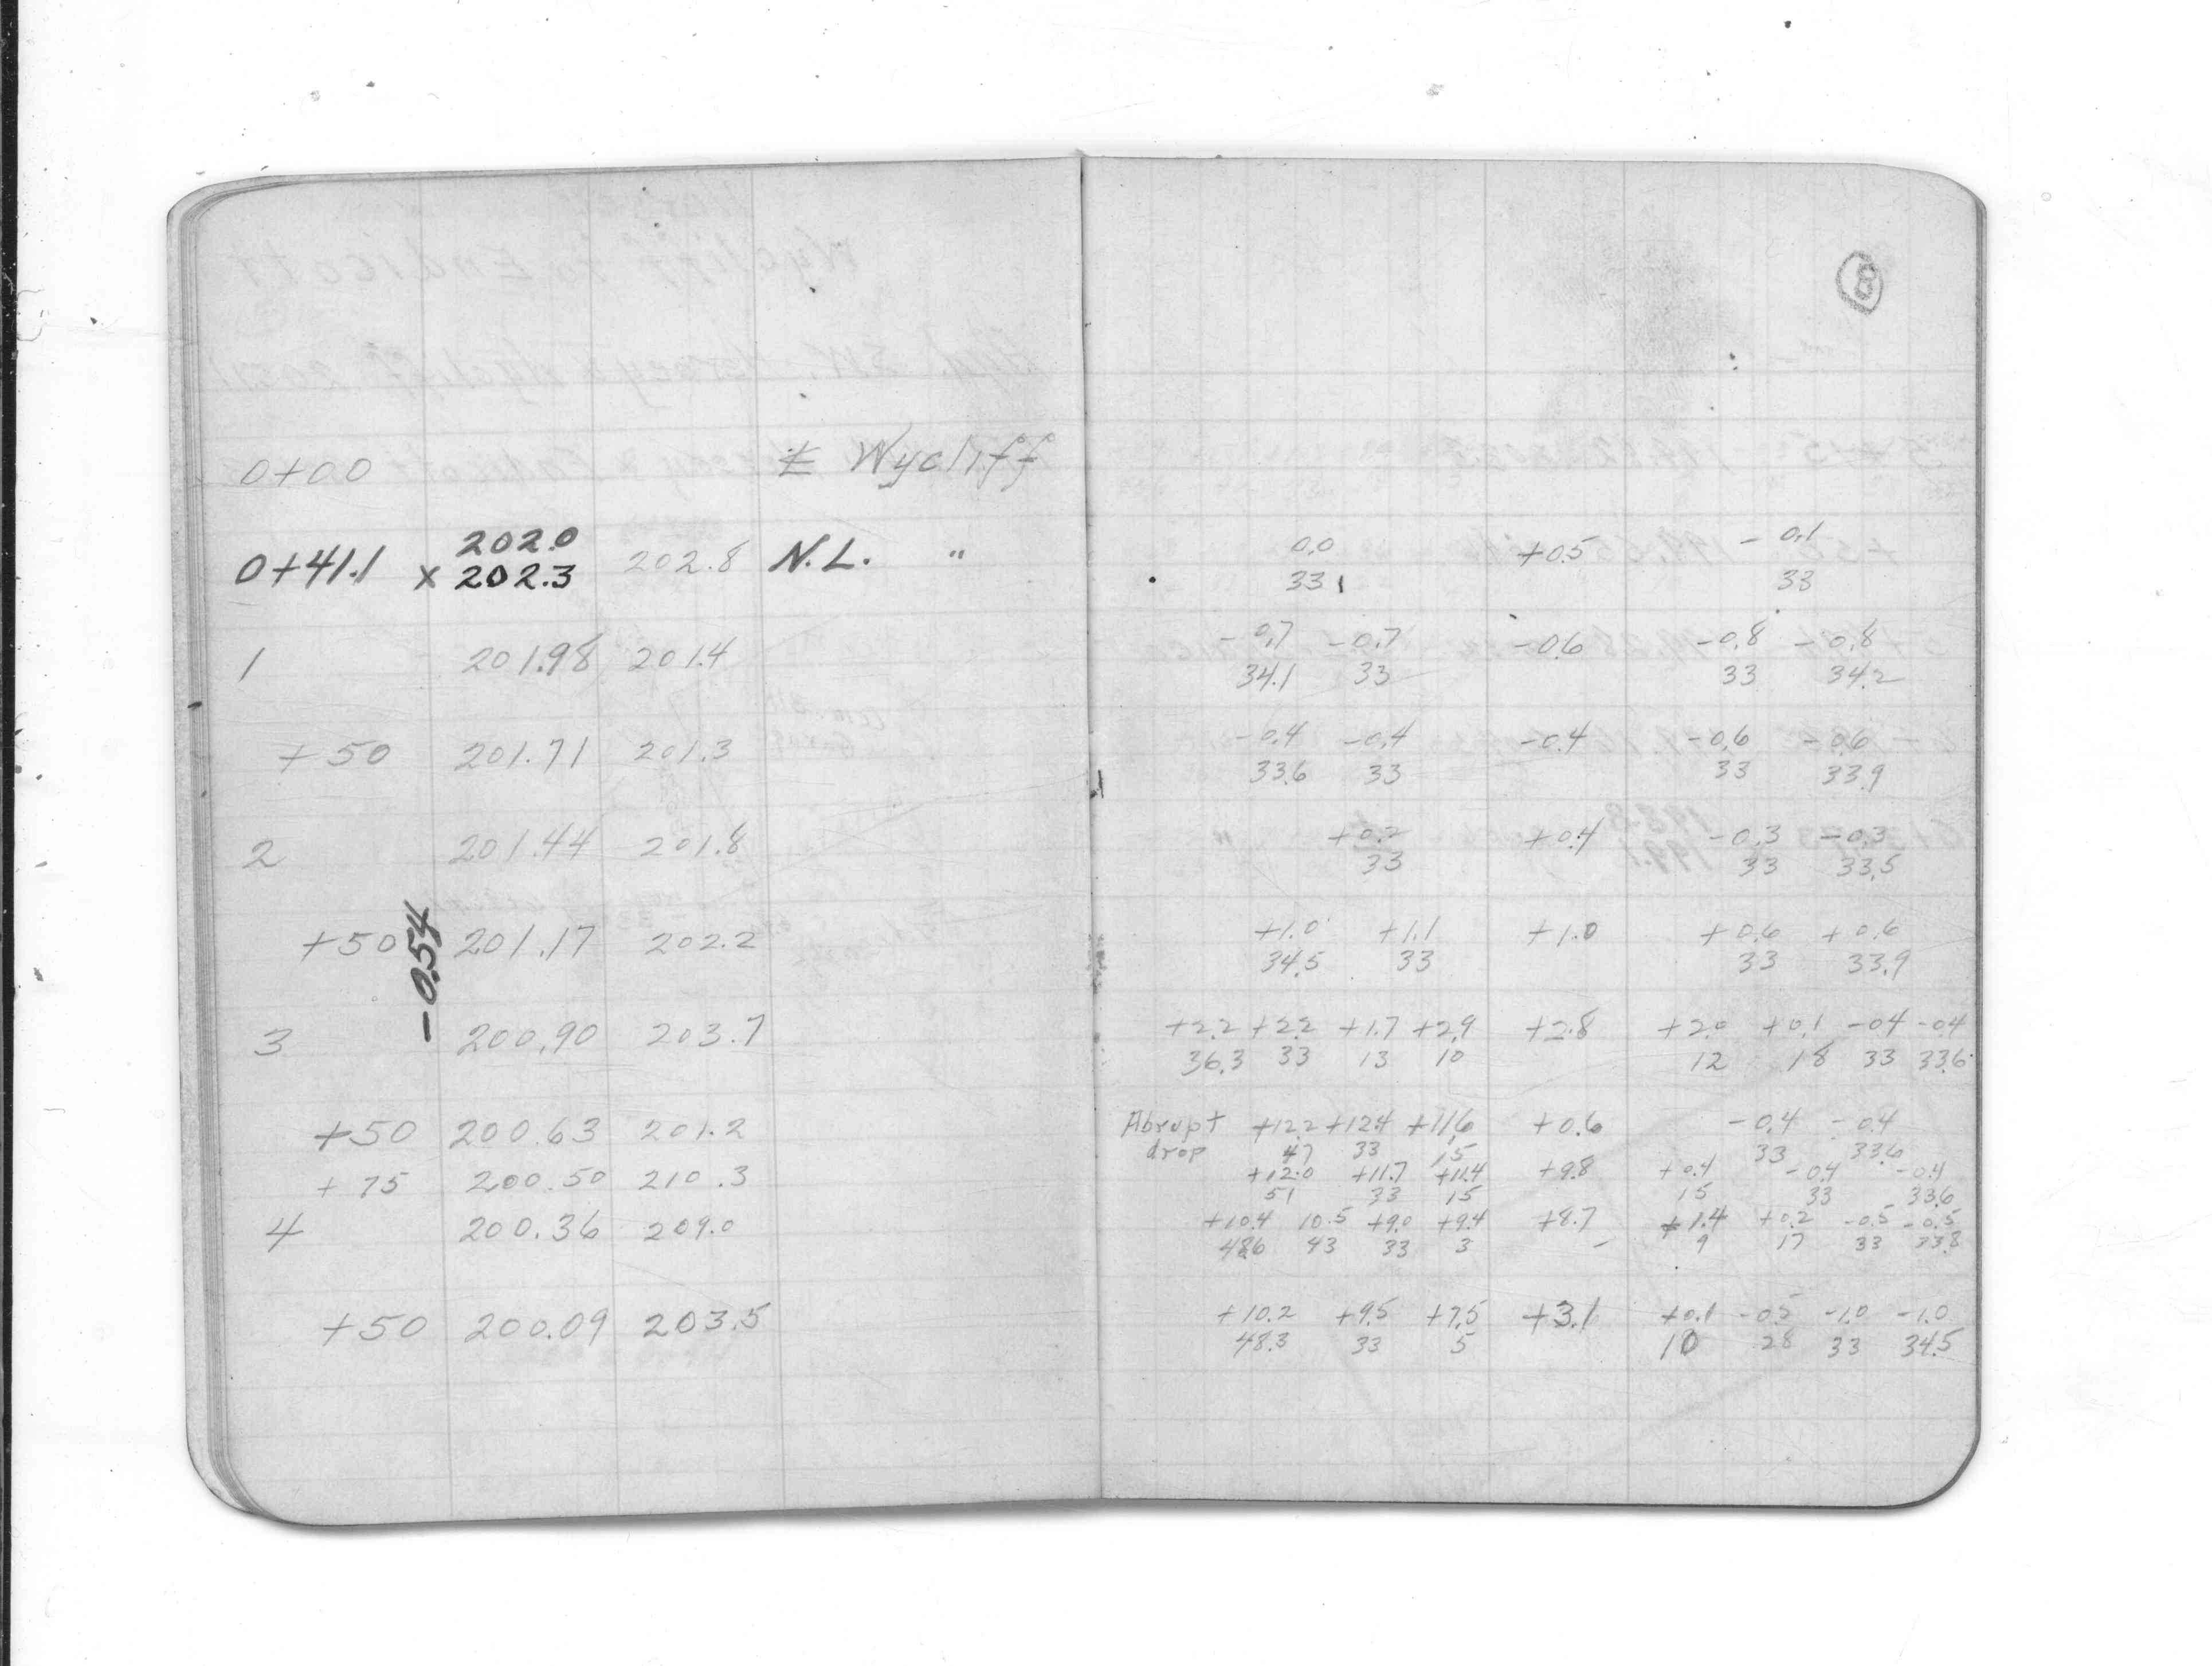 0+00 ⅊ Wycliff
202.0
0+41.1 x 202.3 202.8 N.L. "
1 201.98 201.4
+50 201.71 201.3
2 201.44 201.8
+50 201.17 202.2
-0.54
3 200.90 203.7
+50 200.63 201.2
+75 200.50 210.3
4 200.36 209.0
+50 200.09 203.5
8
0.0 +0.5 -0.1
33 33
-0.7 -0.7 -0.6 -0.8 -0.8
34.1 33 33 34.2
-0.4 -0.4 -0.4 -0.6 -0.6
33.6 33 33 33.9
+0.2 +0.4 -0.3 -0.3
33 33 33.5
+1.0 +1.1 +1.0 +0.6 +0.6
34.5 33 33 33.9
+2.2 +2.2 +1.7 +2.9 +2.8 +2.0 +0.1 -0.4 -0.4
36.3 33 13 10 12 18 33 33.6
Abrupt +12.2 +12.4 +11.6 +0.6 -0.4 -0.4
drop 47 33 15 33 33.6
+12.0 +11.7 +11.4 +9.8 +0.4 -0.4 -0.4
51 33 15 15 33 33.6
+10.4 10.5 +9.0 +9.4 +8.7 +1.4 +0.2 -0.5 -0.5
48.6 43 33 3 - 9 17 33 33.8
+10.2 +9.5 +7.5 +3.1 +0.1 -0.5 -1.0 -1.0
48.3 33 5 10 28 33 34.5